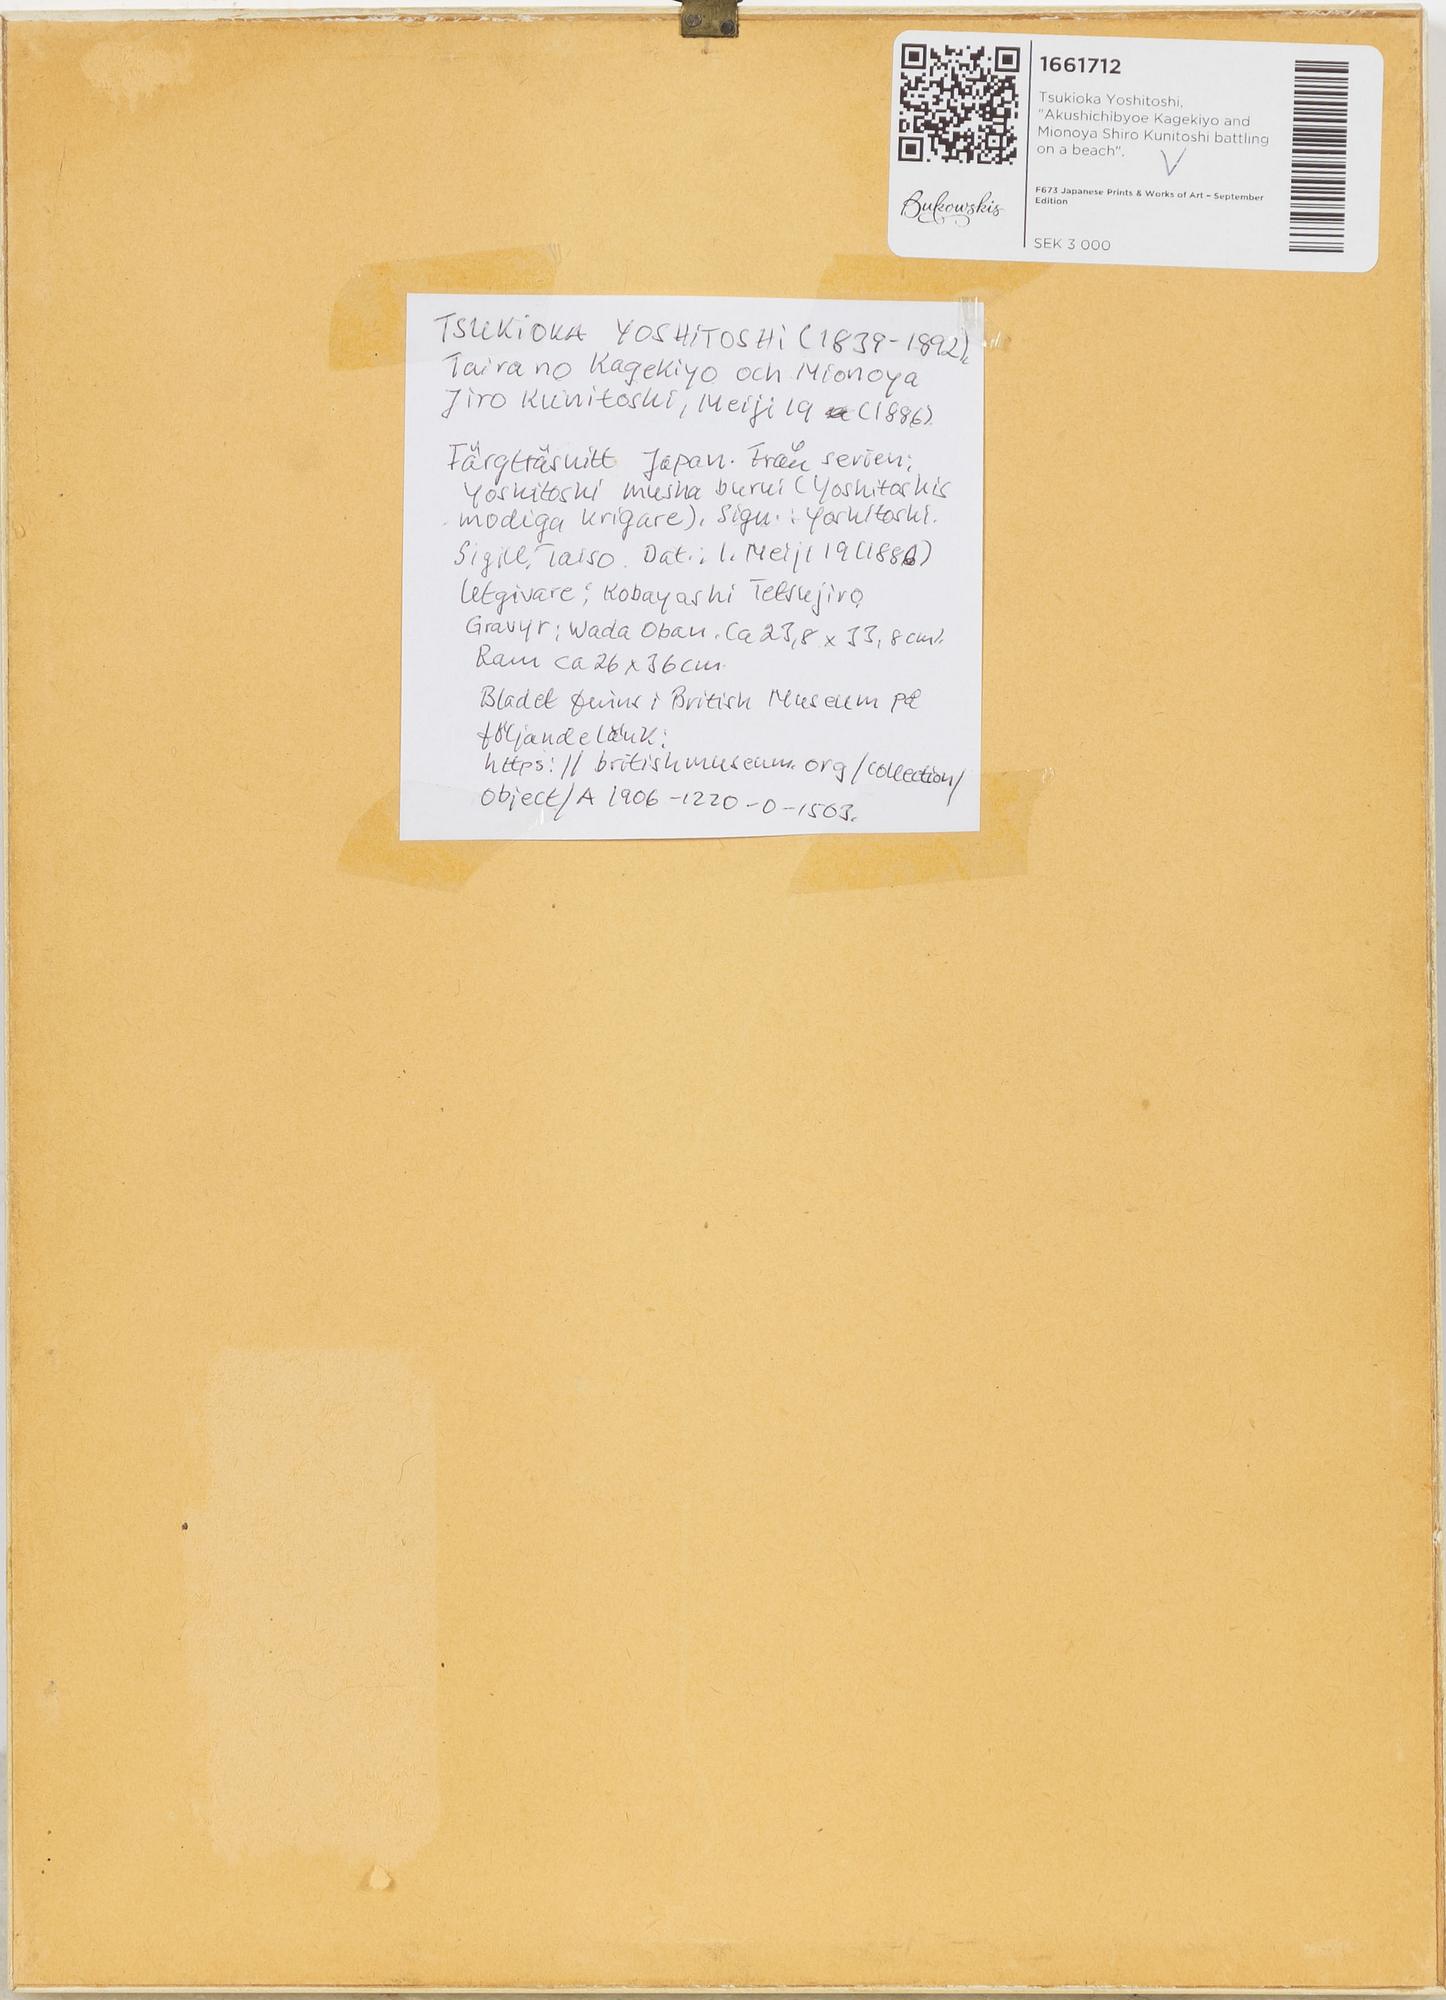 1661712
Tsukioka Yoshitoshi,
"Akushichibyoe Kagekiyo and
Mionoya Shiro Kunitoshi battling
on a beach".
V
F673 Japanese Prints & Works of Art – September
Edition
SEK 3 000
Bukowskis
TSUKIOKA YOSHITOSHI (1839-1892),
Taira no Kagekiyo och Mionoya
Jiro Kunitoshi, Meiji 19 (1886).
Färgträsnitt Japan. Från serien:
Yoshitoshi musha burui (Yoshitoshis
modiga krigare). Sign.: Yoshitoshi.
Sigill: Taiso. Dat.: 1. Meiji 19 (1886)
Utgivare: Kobayashi Tetsujiro
Gravyr: Wada Oban. Ca 23,8 x 33,8 cm.
Ram ca 26 x 36 cm.
Bladet finns i British Museum på
följande länk:
https://britishmuseum.org/collection/
object/A 1906-1220-0-1503.